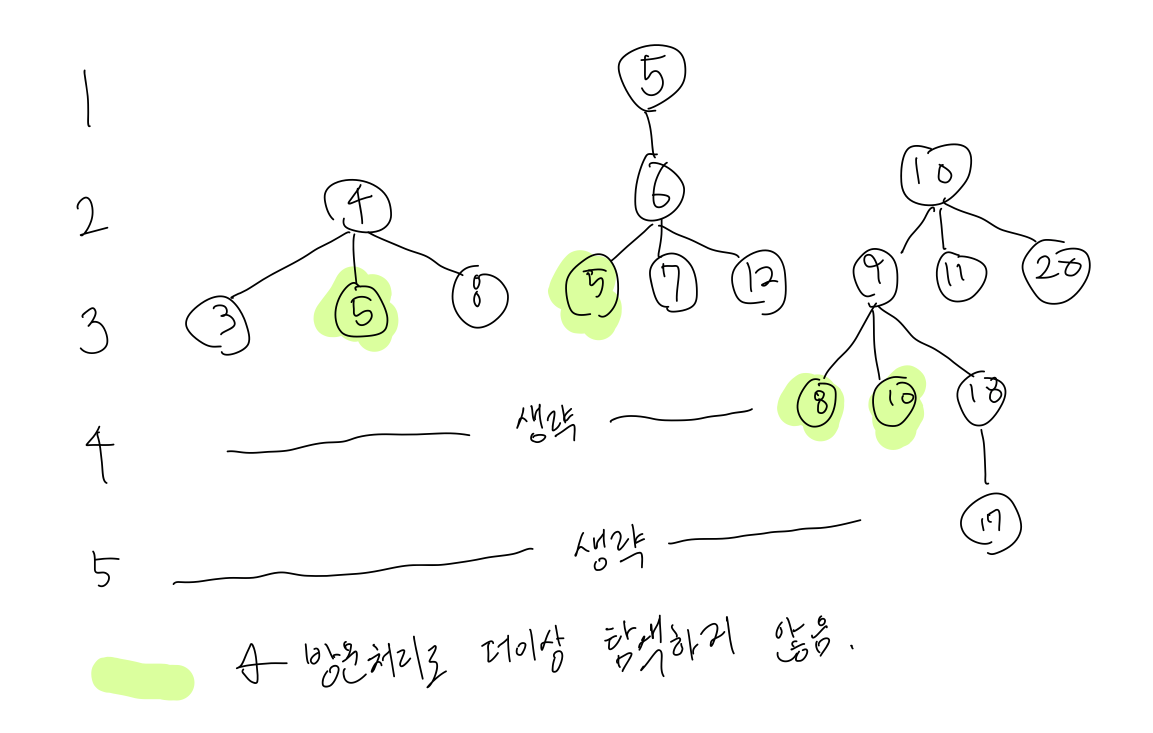 1
5
2
4
6
10
3
3
5
8
5
7
12
9
11
20
4
생략
8
10
18
5
생략
17
← 방문처리로 더이상 탐색하지 않음.